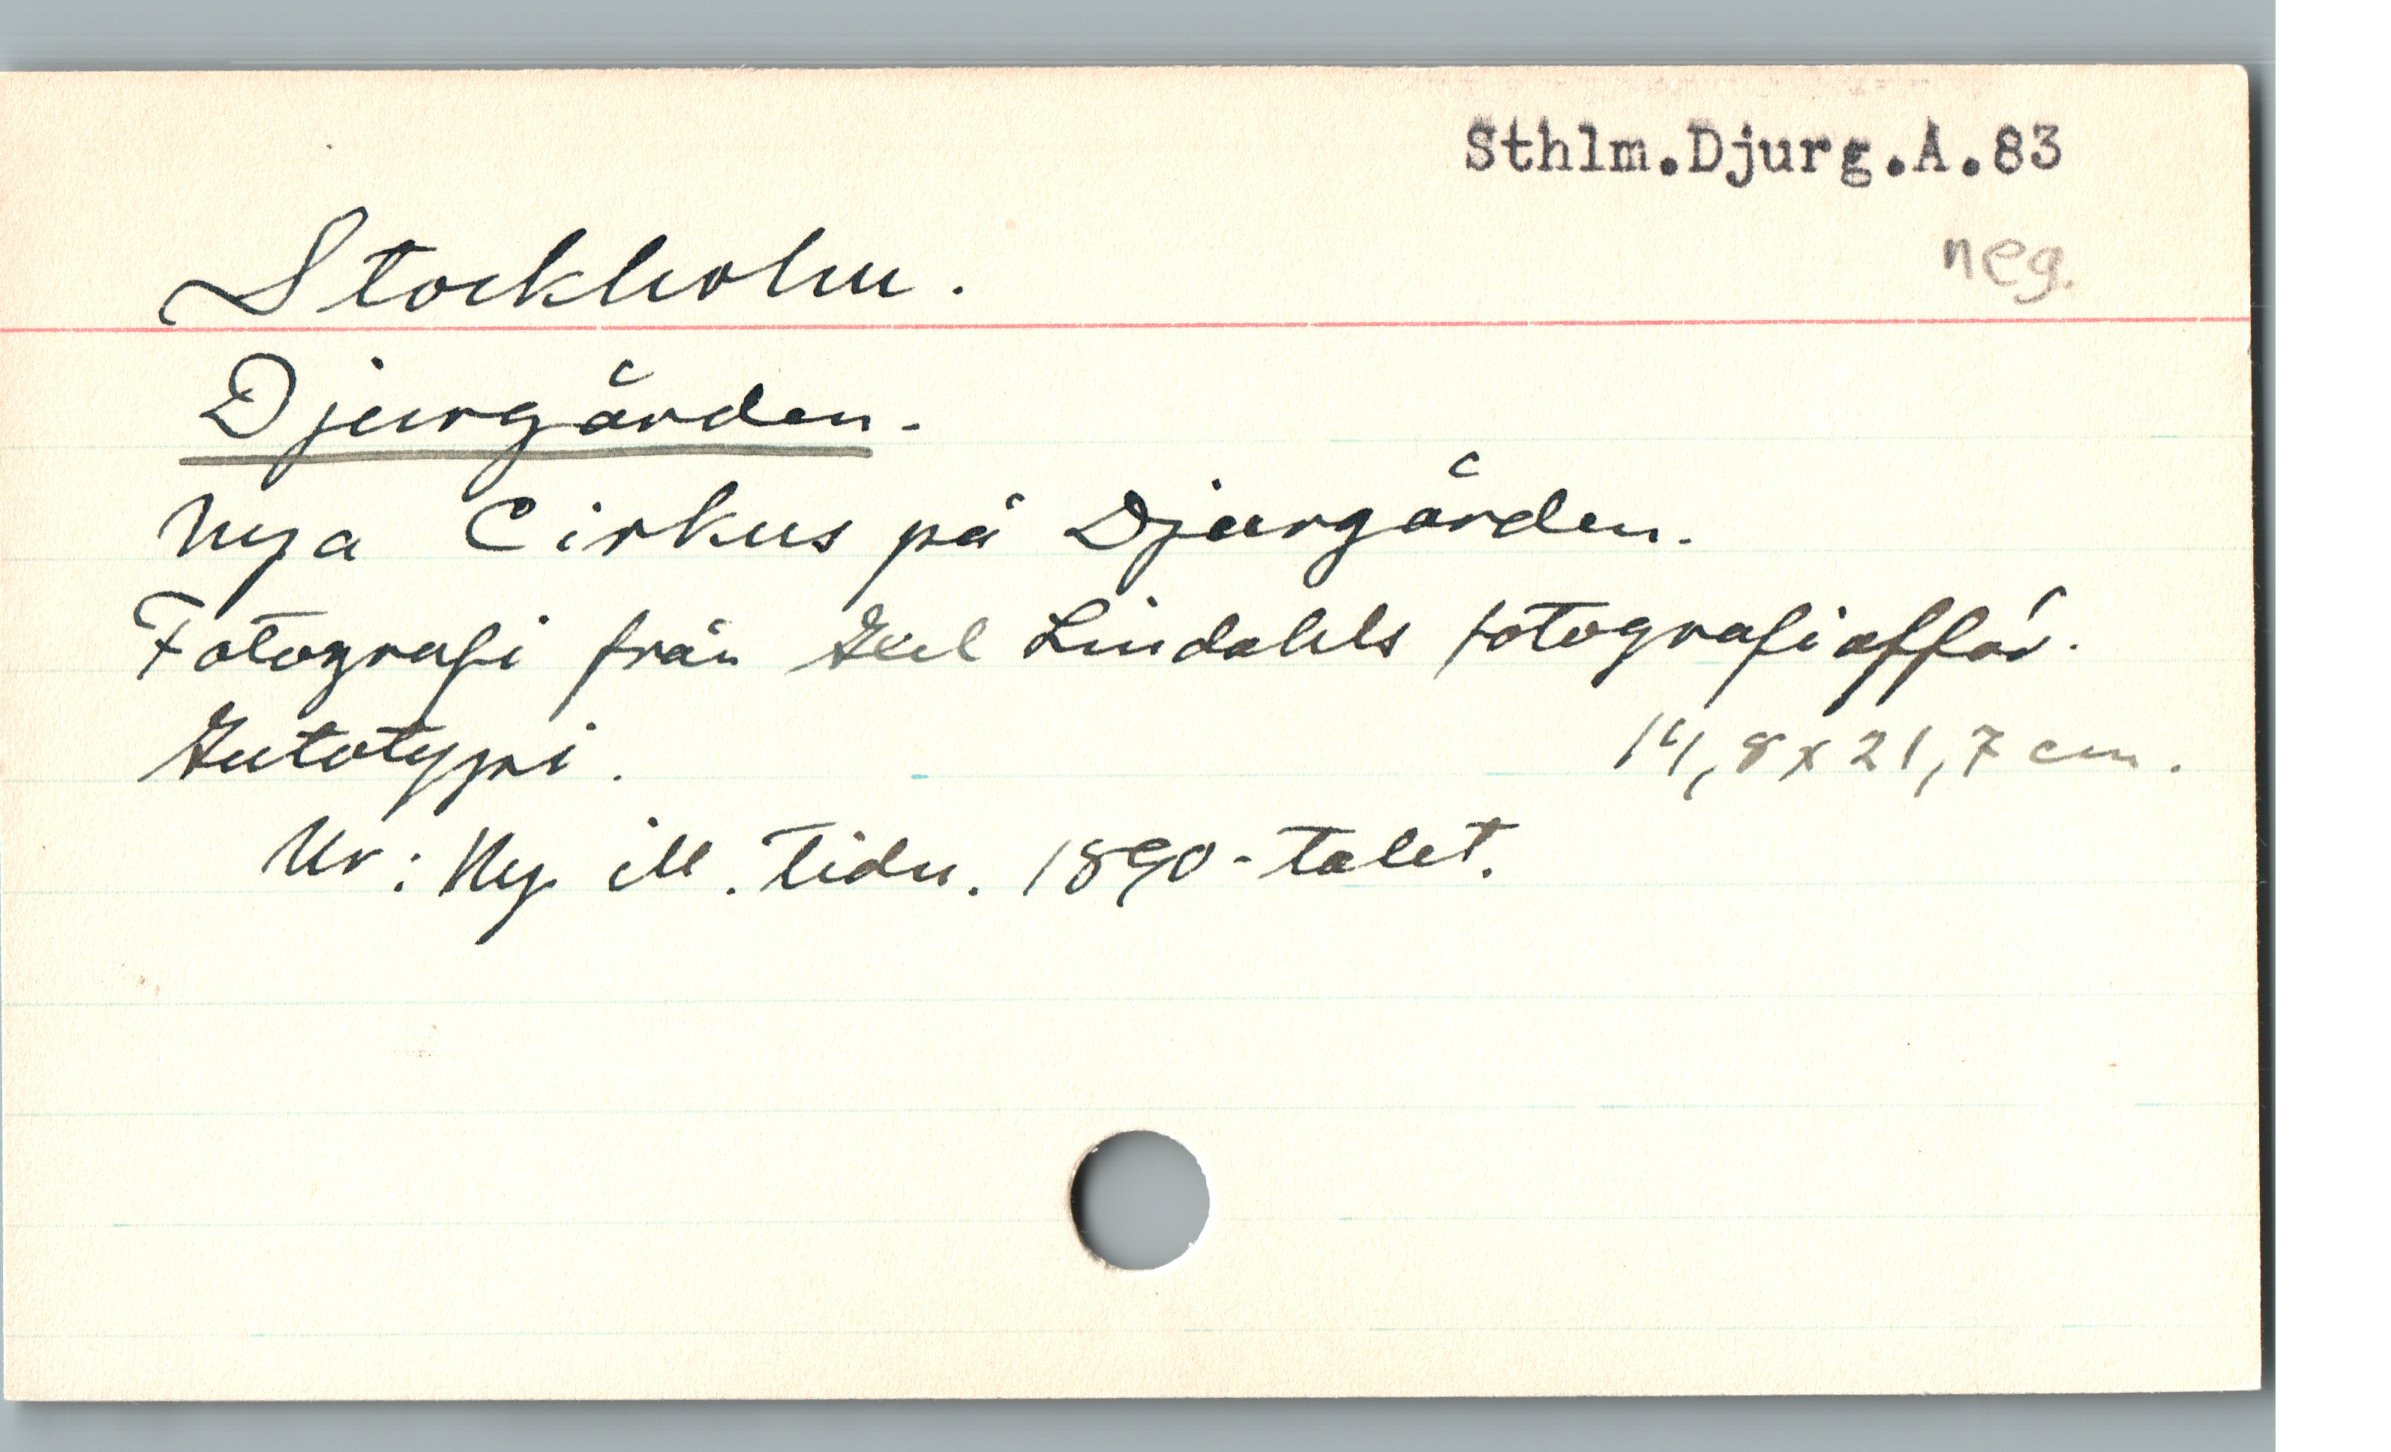 Sthlm.Djurg.A.83
neg.
Stockholm.
Djurgården.
Nya Cirkus på Djurgården.
Fotografi från Axel Lindahls fotografiaffär.
Autotypi. 14,8 x 21,7 cm.
Ur: Ny ill. Tidn. 1890-talet.